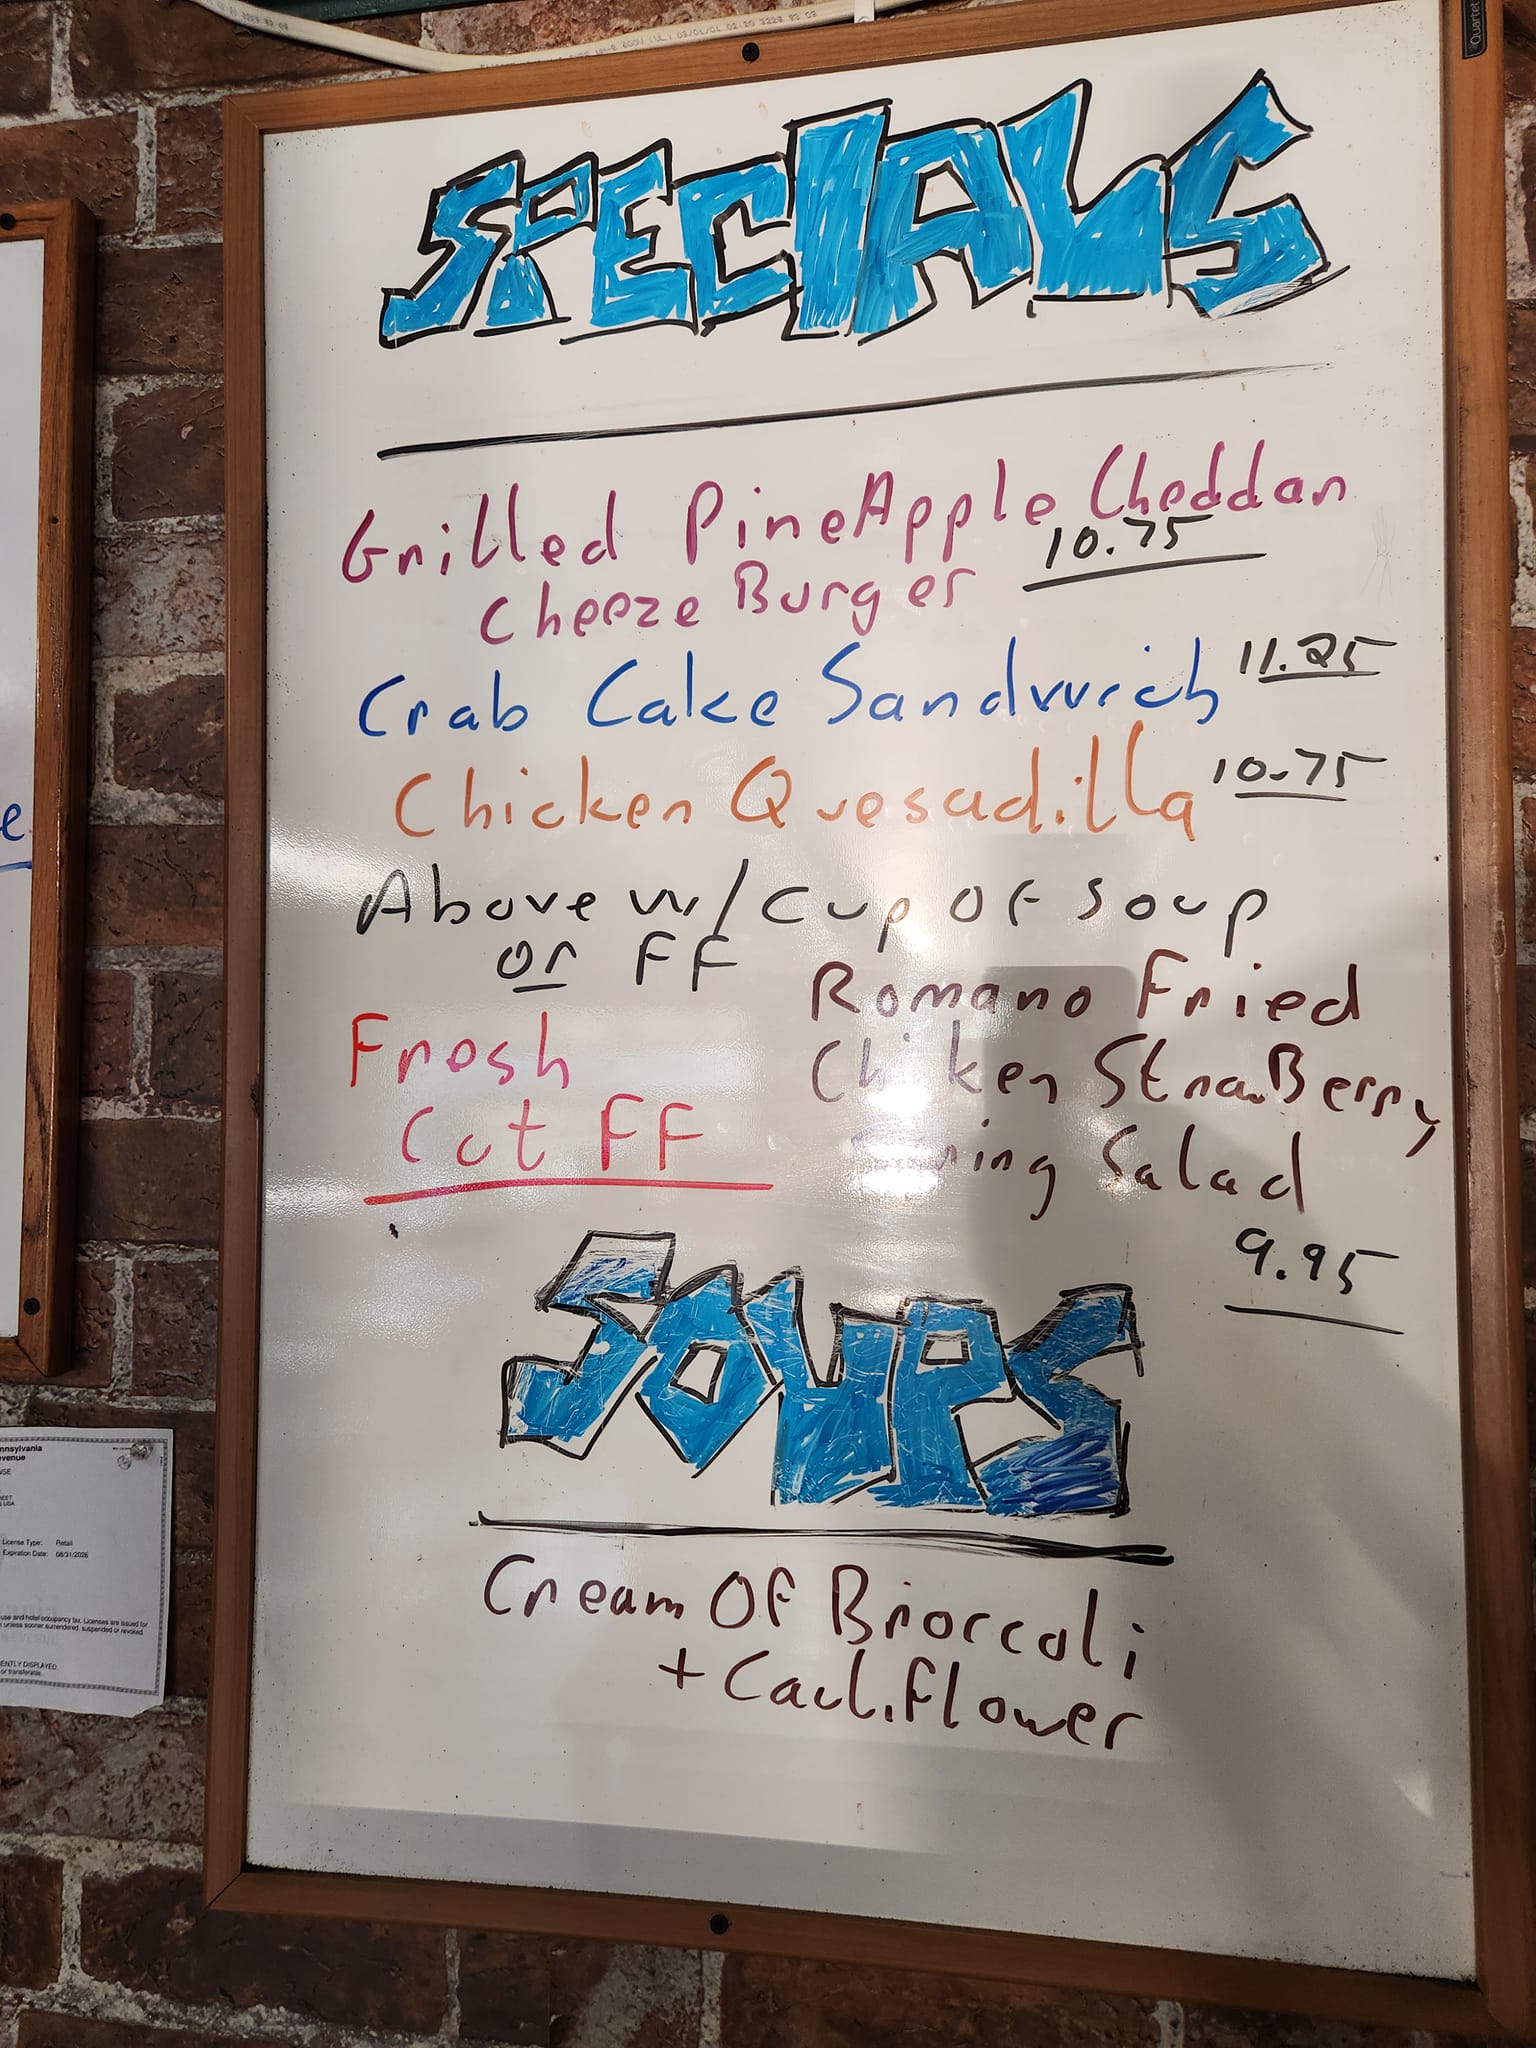 Quartet
SPECIALS
Grilled PineApple Cheddar
10.75
Cheeze Burger
Crab Cake Sandwich 11.25
Chicken Quesadilla 10.75
Above w/ Cup OF Soup
or FF
Fresh
Cut FF
Romano Fried
Chicken StrawBerry
Spring Salad
9.95
SOUPS
Cream OF Brorccoli
+ Cauliflower
e
nnsylvania
evenue
NSE
REET
USA
License Type: Retail
Expiration Date: 08/31/2026
use and hotel occupancy tax. Licenses are issued for
unless sooner surrendered, suspended or revoked.
ENTLY DISPLAYED.
or transferable.